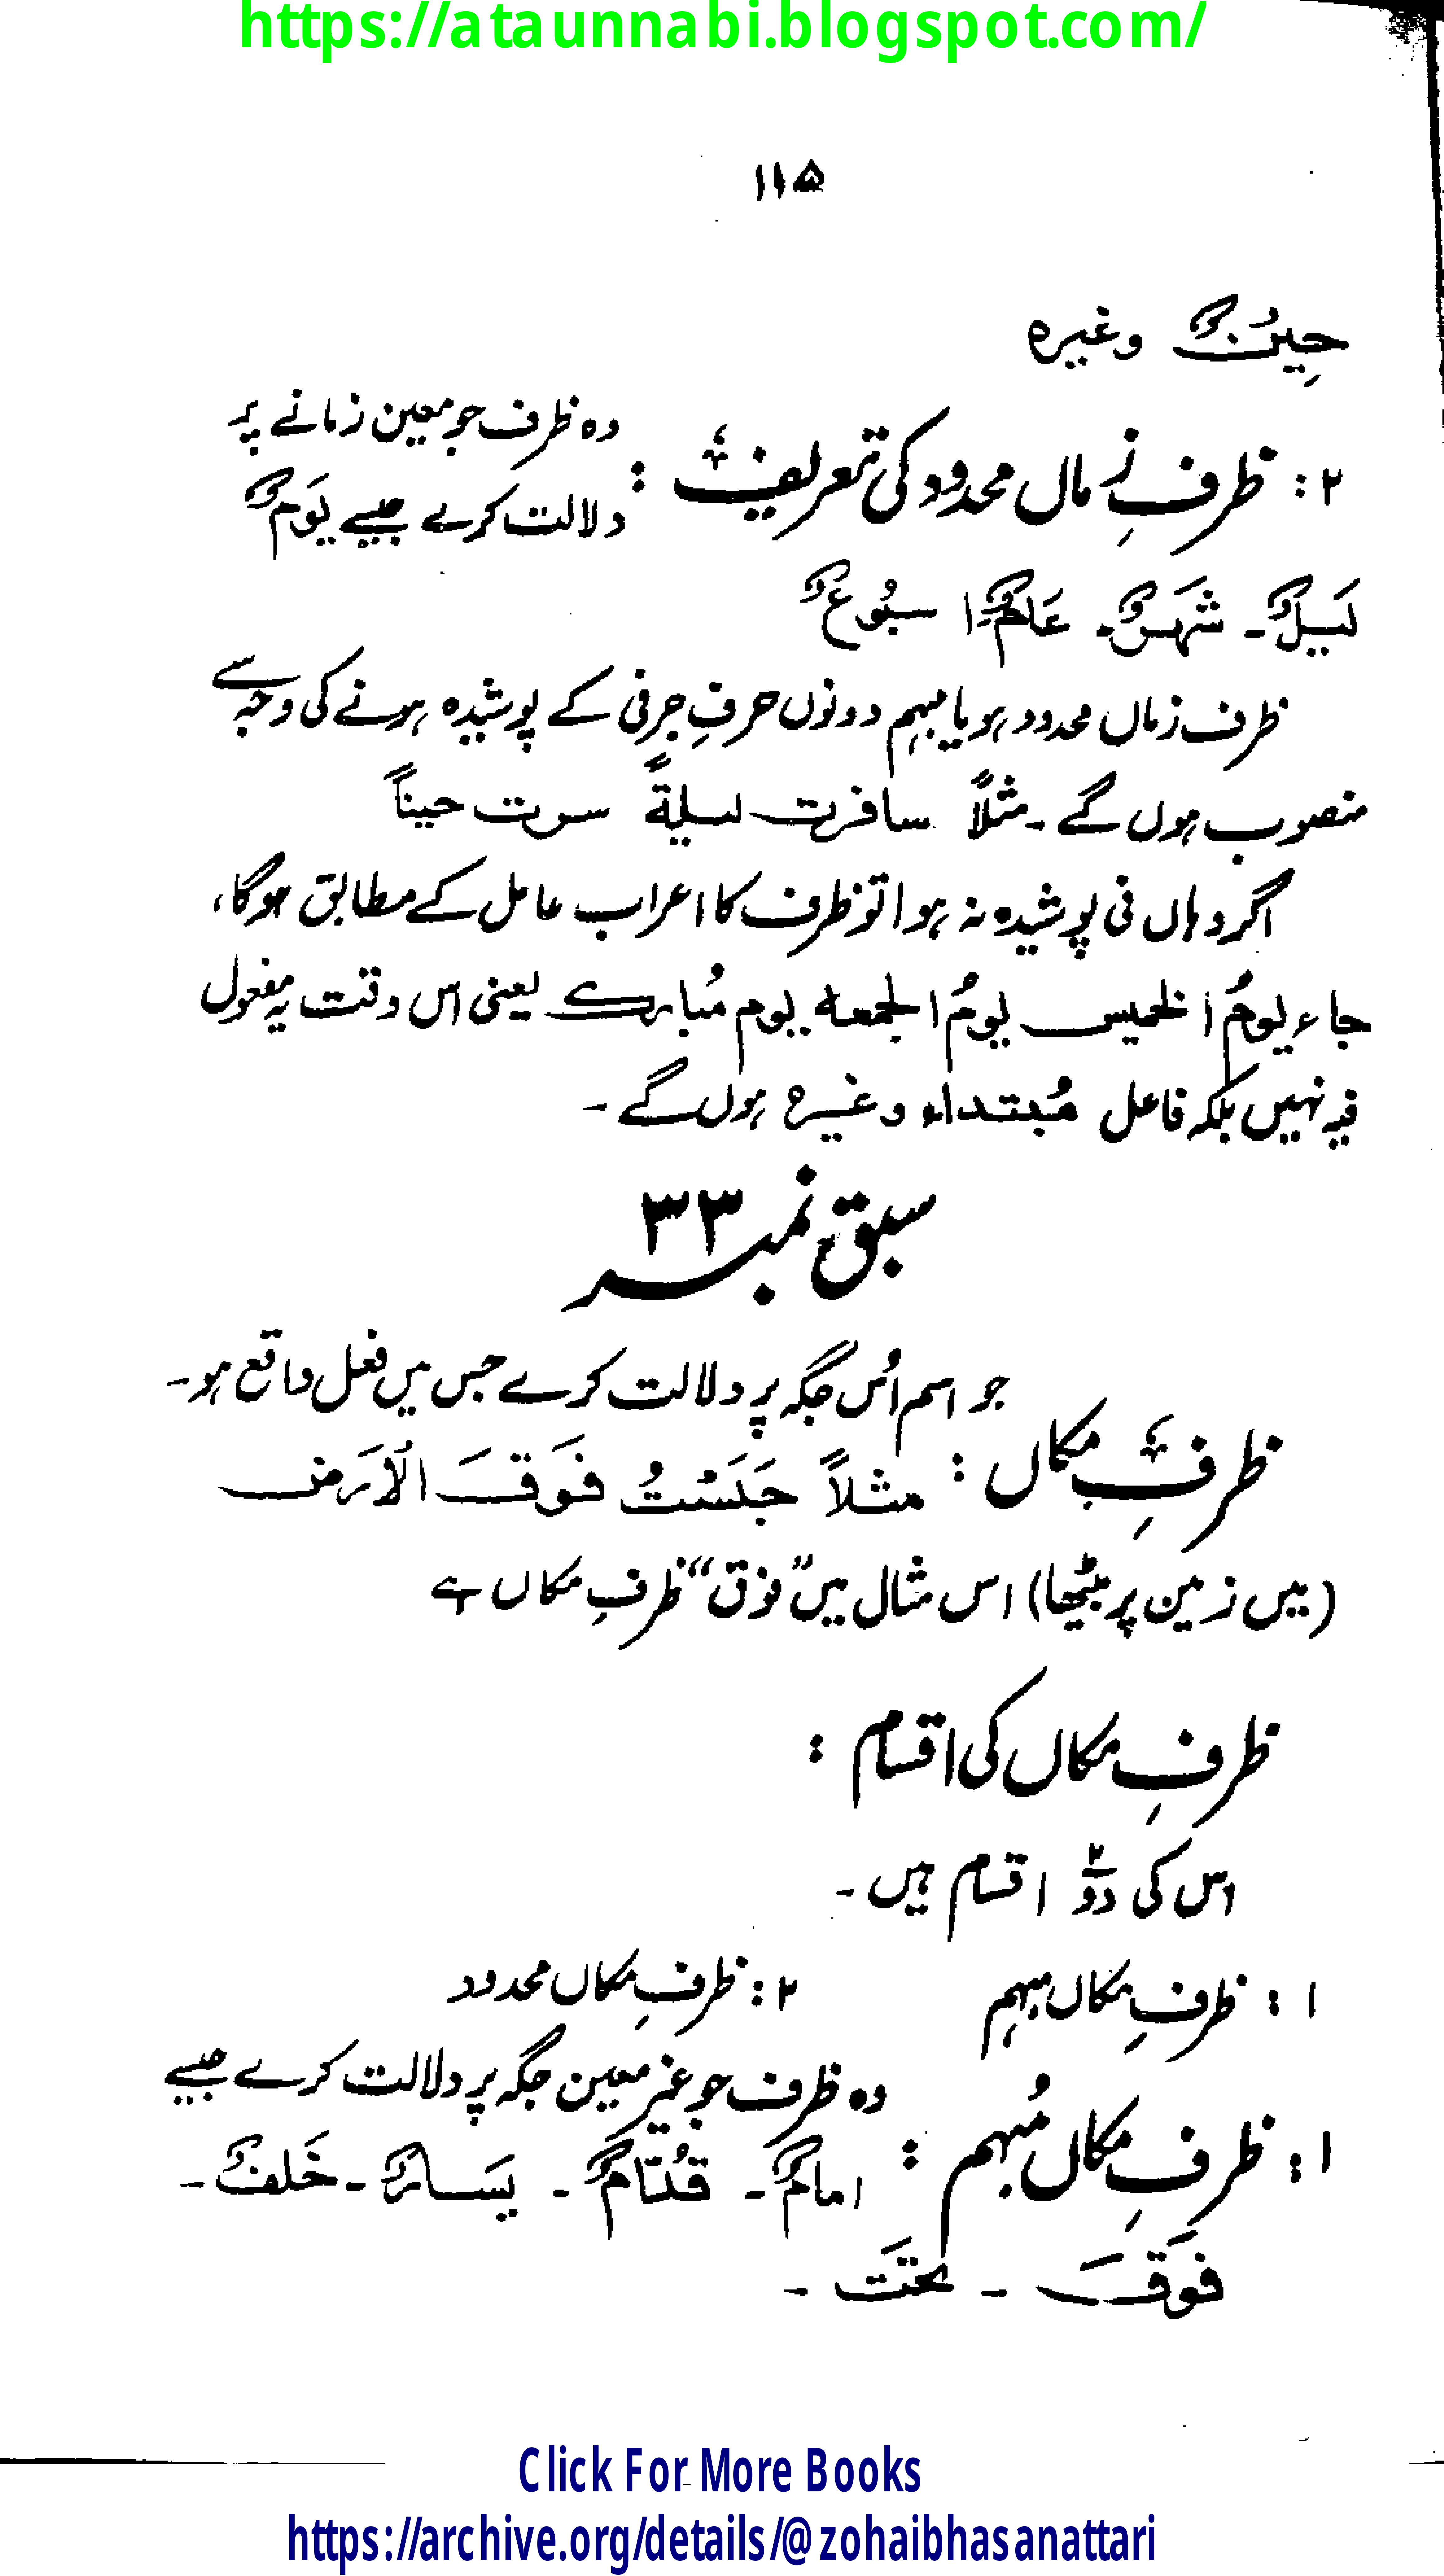 https://ataunnabi.blogspot.com/
۱۱۵
حِینٌ وغیرہ
۲: ظرفِ زماں محدود کی تعریف: وہ ظرف جو معین زمانے پر
دلالت کرے جیسے یَومٌ
لَیلٌ۔ شَہرٌ۔ عَامٌ۔ ا سبُوعٌ
ظرف زماں محدود ہو یا مبہم دونوں حرفِ جرفی کے پوشیدہ ہونے کی وجہ سے
منصوب ہوں گے۔ مثلاً سافرت لیلةً سرت حیناً
اگر وہاں فی پوشیدہ نہ ہوا تو ظرف کا اعراب عامل کے مطابق ہوگا،
جاء یومُ الخمیس یومُ الجمعہ یوم مُبارک یعنی اس وقت یہ مفعول
فیہ نہیں بلکہ فاعل مُبتداء وغیرہ ہوں گے۔
سبق نمبر ۳۳
ظرفِ مکاں: جو اسم اُس جگہ پر دلالت کرے جس میں فعل واقع ہو۔
مثلاً جَلَسْتُ فَوقَ الْاَرض
(میں زمین پر بیٹھا) اس مثال میں ”فوق“ ظرفِ مکاں ہے
ظرفِ مکاں کی اقسام:
اس کی دو۲ اقسام ہیں۔
۱: ظرفِ مکاں مبہم ۲: ظرفِ مکاں محدود
۱: ظرفِ مکاں مُبہم: وہ ظرف جو غیر معین جگہ پر دلالت کرے جیسے
امامٌ۔ قُدّامٌ۔ یَسَارٌ۔ خَلفٌ۔
فَوقَ۔ تَحتَ۔
Click For More Books
https://archive.org/details/@zohaibhasanattari